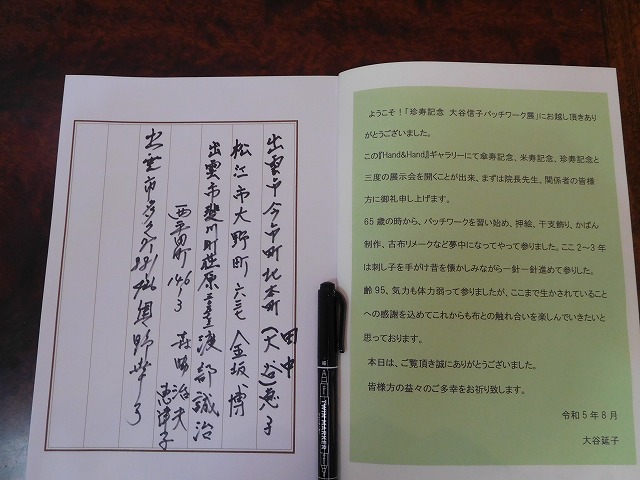 出雲市今市町北本町 (大谷)恵子
田中
松江市大野町六三七 金坂 博
出雲市斐川町荘原 渡部誠治
西平田町 146-3 治夫
恵津子
出雲市
ようこそ！「珍寿記念 大谷信子パッチワーク展」にお越し頂きあり
がとうございました。
この『Hand&Hand』ギャラリーにて傘寿記念、米寿記念、珍寿記念と
三度の展示会を開くことが出来、まずは院長先生、関係者の皆様
方に御礼申し上げます。
65歳の時から、パッチワークを習い始め、押絵、干支飾り、かばん
制作、古布リメークなど夢中になってやって参りました。ここ2～3年
は刺し子を手がけ昔を懐かしみながら一針一針進めて参りした。
齢95、気力も体力弱って参りましたが、ここまで生かされていること
への感謝を込めてこれからも布との触れ合いを楽しんでいきたいと
思っております。
本日は、ご覧頂き誠にありがとうございました。
皆様方の益々のご多幸をお祈り致します。
令和5年8月
大谷延子
TWIN MARKER